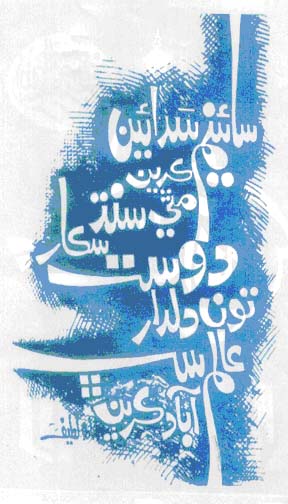 سائينم سدائين
ڪرين
مٿي سنڌ
سڪار
دوست
تون دلدار
عالم سڀ
آباد ڪرين
لطيف